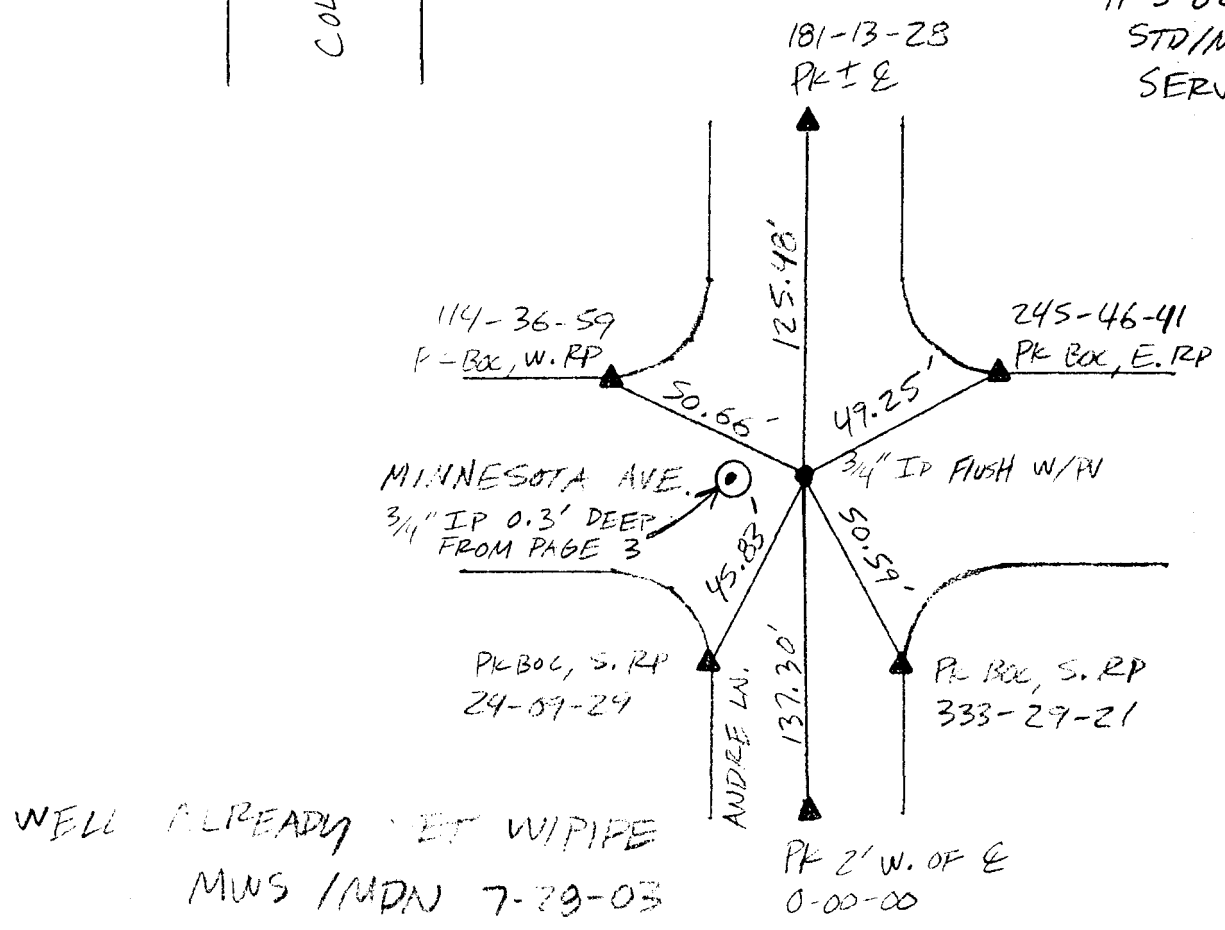 181-13-28
PK ± ℄
STD/
125.48'
114-36-59
BOC, W. RP
245-46-41
PK BOC, E. RP
50.66'
49.25'
MINNESOTA AVE.
3/4" IP FLUSH W/PV
3/4" IP 0.3' DEEP
FROM PAGE 3
45.83'
50.59'
PK BOC, S. RP
24-09-29
PK BOC, S. RP
333-29-21
ANDRE LN.
137.30'
WELL ALREADY W/PIPE
MWS /MDN 7-29-03
PK 2' W. OF ℄
0-00-00